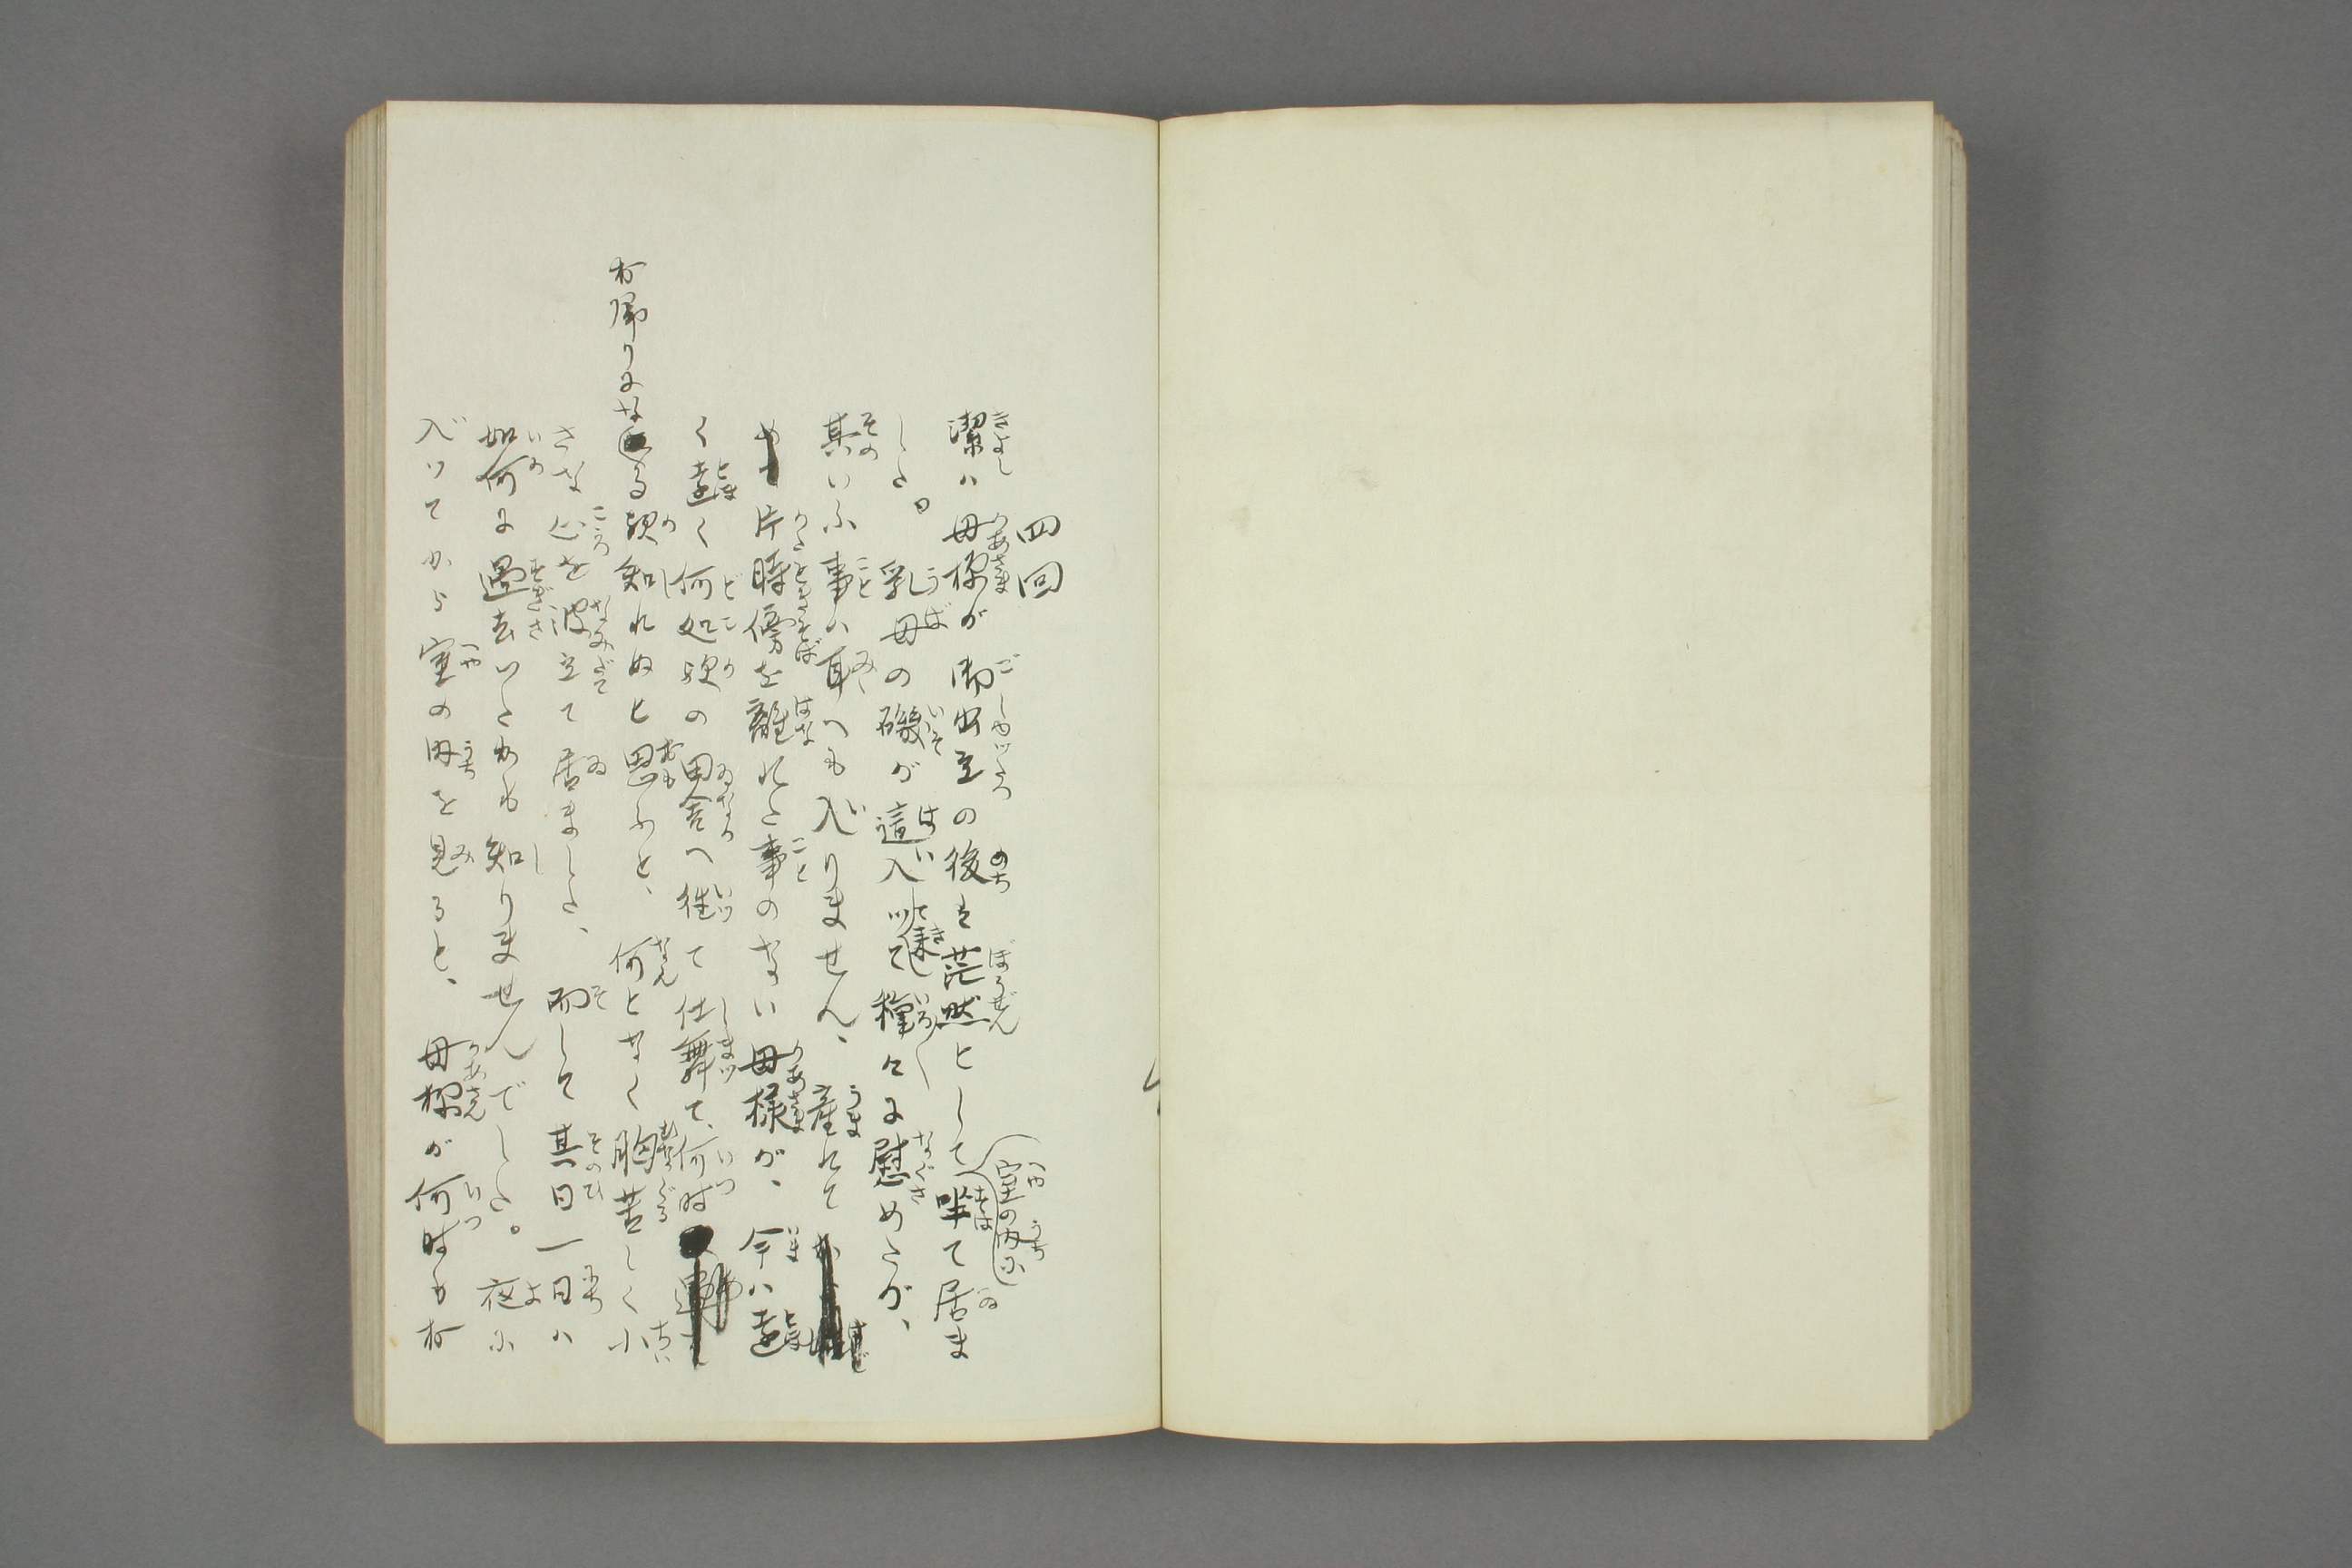 四回
潔ハ母様が御出立の後は茫然として室の内に坐て居ま
した。乳母の磯が這入ツて来て種々に慰めたが、
其いふ事ハ耳へも入りません、産れて
片時傍を離れた事のない母様が、今ハ遠
く遠く何処かの田舎へ往て仕舞て、何時
お帰りになる歟知れぬと思ふと、何となく胸苦しく小
さな心を波立て居ました、而して其日一日ハ
如何に過去いたかも知りませんでした。夜に
入ツてから室の内を見ると、母様が何時もお